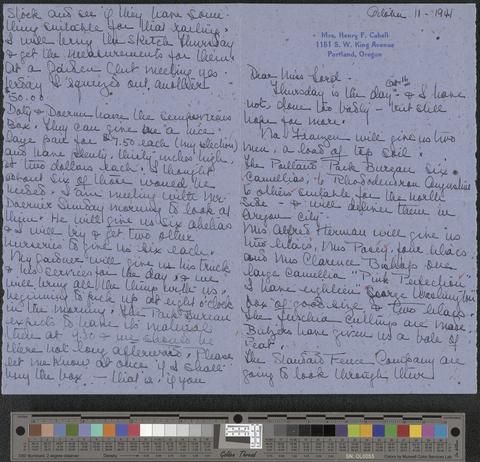 October 11 - 1941
Mrs. Henry F. Cabell
1151 S. W. King Avenue
Portland, Oregon
Dear Miss Lord -
Thursday is the day - Oct 16th & I have
not done too badly - but still
hope for more.
will give us two
men, a load of top soil.
The Portland Park Bureau six
Camellias, 6 Rhododendron Augustini
6 others suitable for the north
side - & will deliver them in
Oregon City -
Mrs Alfred Herman will give us
two lilacs, Mrs four lilacs
and Mrs Clarence Bishop one
large Camellia "Pink Perfection"
I have eighteen George Washington
box of good size & two lilacs.
The fuschia cuttings are made.
have given us a bale of
Peat.
The Standard Fence Company are
going to look through their
stock and see if they have some-
thing suitable for that railing.
I will bring the sketch Thursday
& get the measurements for them.
At a Garden Club meeting yes-
terday I squeezed out another
$50.00
Doty & Doerner have the sempervirens
Box. They can give me a nice
large pair for $7.50 each (my selection)
and have plenty, thirty inches high,
at two dollars each. I thought
about six of those would be
needed. I am meeting with Mr.
Doerner Sunday morning to look at
them. He will give us six abelias
& I will try & get two other
nurseries to give us six each.
My gardener will give us his truck
& his services for the day, & we
will bring all the things with us -
beginning to pick up at eight o'clock
in the morning. The Park Bureau
expects to have its material
there at 9:30 & we should be
there not long afterward. Please
let me know at once if I shall
buy the box. - that is, if you
Golden Thread
D50 Illuminant, 2 degree observer
SN: OL0055
Colors by Munsell Color Services Lab